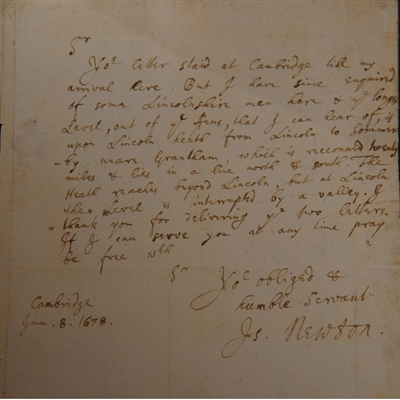 Sr
Yor letter staid at Cambridge till my
arrival here. But I have since enquired
of some Lincolnshire men here & ye longest
Level, out of ye Fens, that I can hear of, is
upon Lincoln heath from Lincoln to
by, neare Grantham, which is recconed twenty
miles & lies in a line north & south. The
Heath reaches beyond Lincoln, but at Lincoln
the Level is interrupted by a valley. I
thank you for delivering ye two letters.
If I can serve you at any time pray
be free wth
Sr
Yor obliged &
humble Servant
Is. Newton.
Cambridge
Jun. 8. 1678.